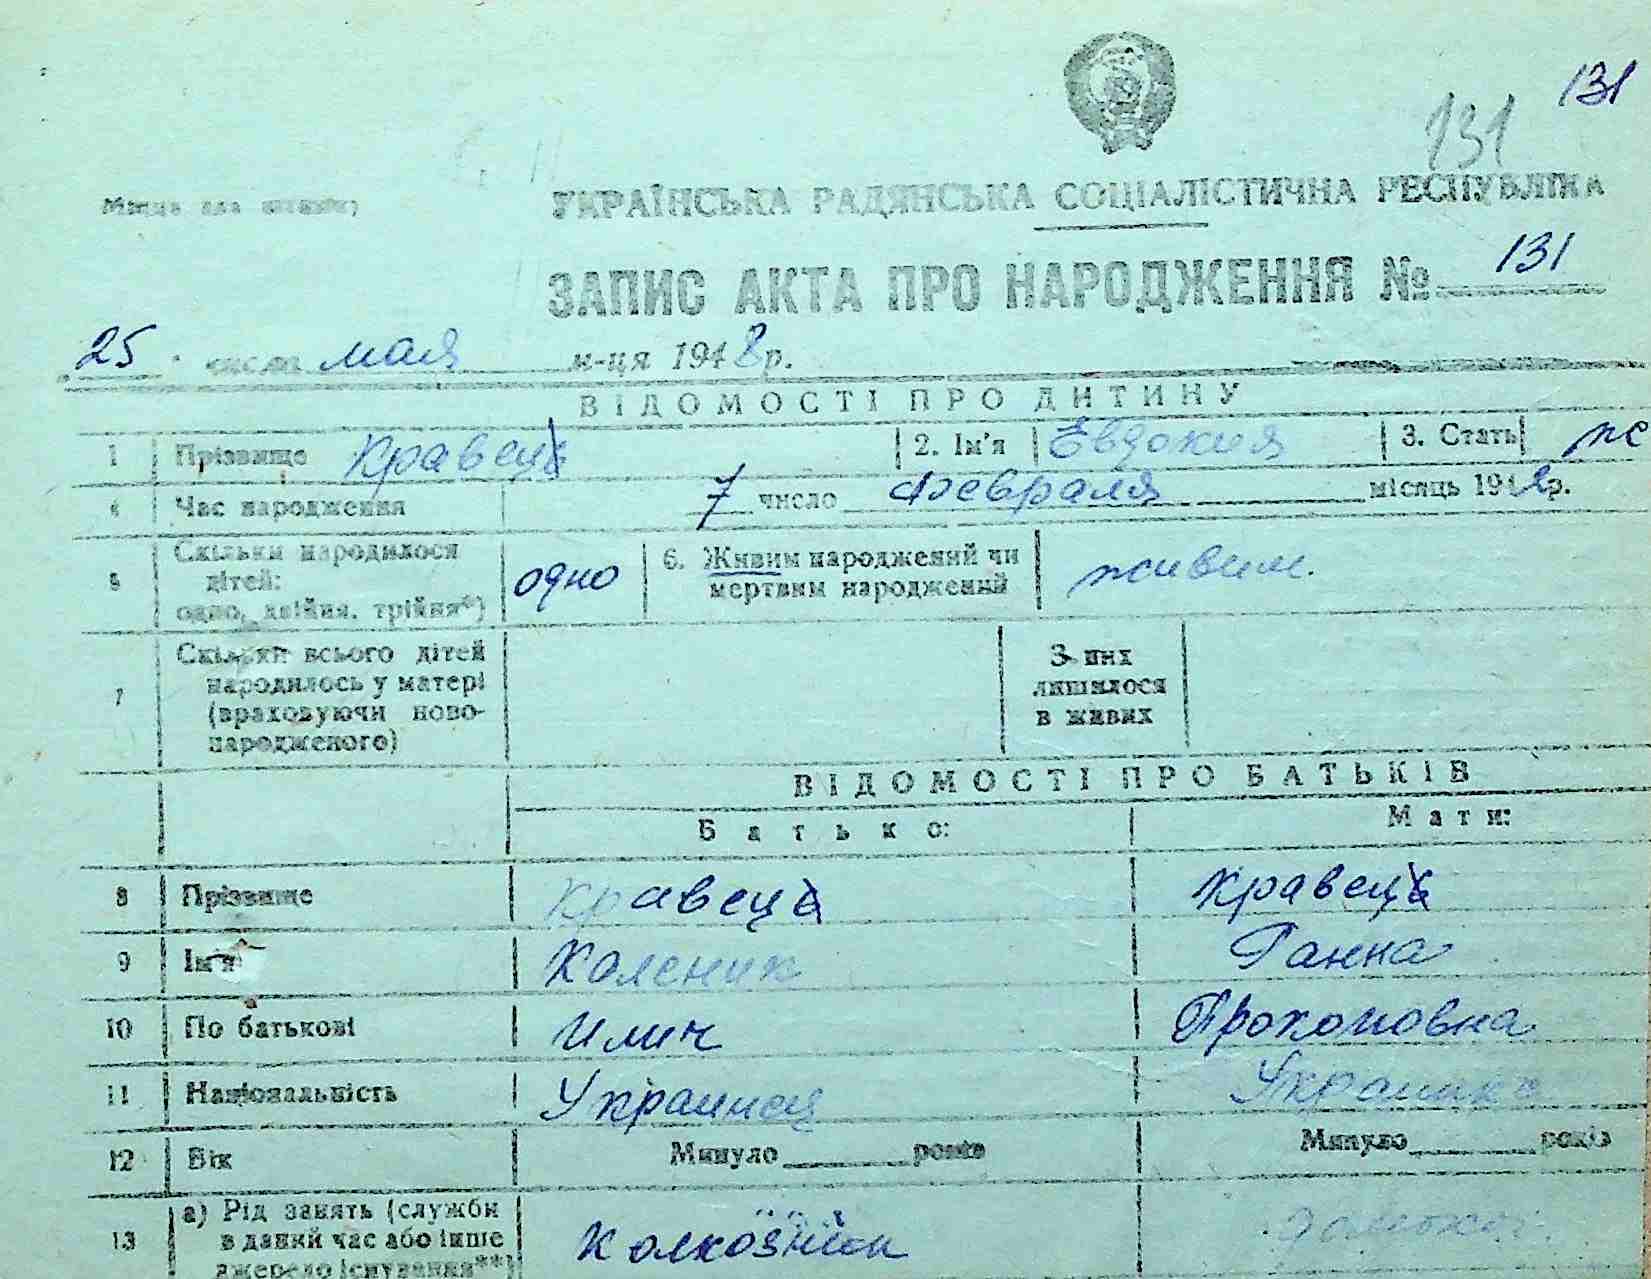 131
131
УКРАЇНСЬКА РАДЯНСЬКА СОЦІАЛІСТИЧНА РЕСПУБЛІКА
ЗАПИС АКТА ПРО НАРОДЖЕННЯ № 131
25 числа мая м-ця 1948 р.
ВІДОМОСТІ ПРО ДИТИНУ
1 Прізвище Кравець 2. Ім'я Евдокия 3. Стать же
4 Час народження 7 число февраля місяць 1948 р.
5 Скільки народилося дітей: одно, двійня, трійня*) одно 6. Живим народжений чи мертвим народжений живим.
7 Скільки всього дітей народилось у матері (враховуючи ново-народженого) З них лишилося в живих
ВІДОМОСТІ ПРО БАТЬКІВ
Батько: Мати:
8 Прізвище Кравець Кравець
9 Ім'я Каленик Ганна
10 По батькові Илич Прокоповна
11 Національність Украинец Украинка
12 Вік Минуло років Минуло років
13 а) Рід занять (служби в даний час або інше джерело існування**) Колхозник